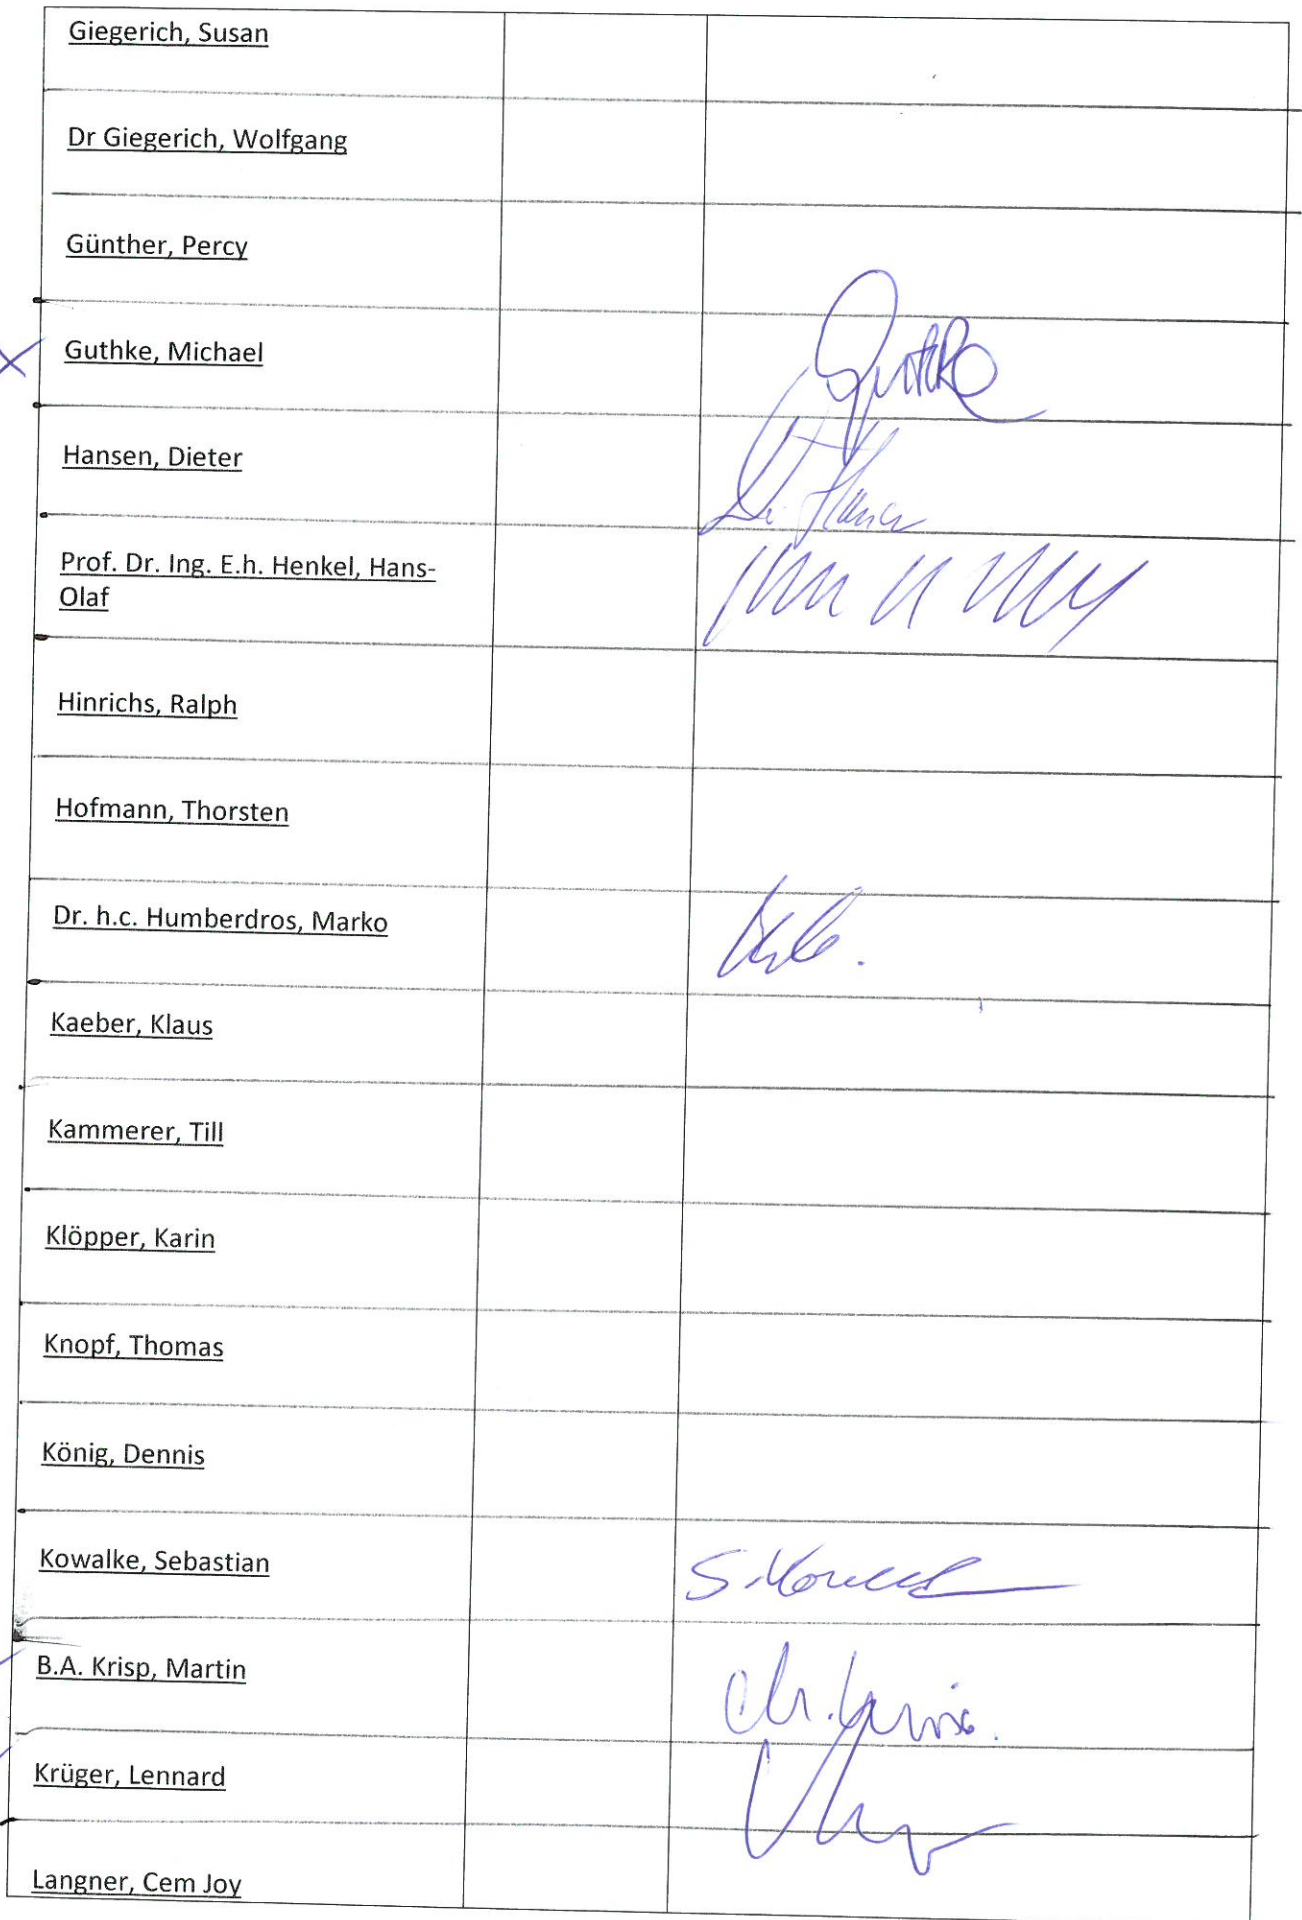 Giegerich, Susan
Dr Giegerich, Wolfgang
Günther, Percy
Guthke, Michael
Guthke
Hansen, Dieter
Prof. Dr. Ing. E.h. Henkel, Hans-
Olaf
Hinrichs, Ralph
Hofmann, Thorsten
Dr. h.c. Humberdros, Marko
Kaeber, Klaus
Kammerer, Till
Klöpper, Karin
Knopf, Thomas
König, Dennis
Kowalke, Sebastian
B.A. Krisp, Martin
Krüger, Lennard
Langner, Cem Joy